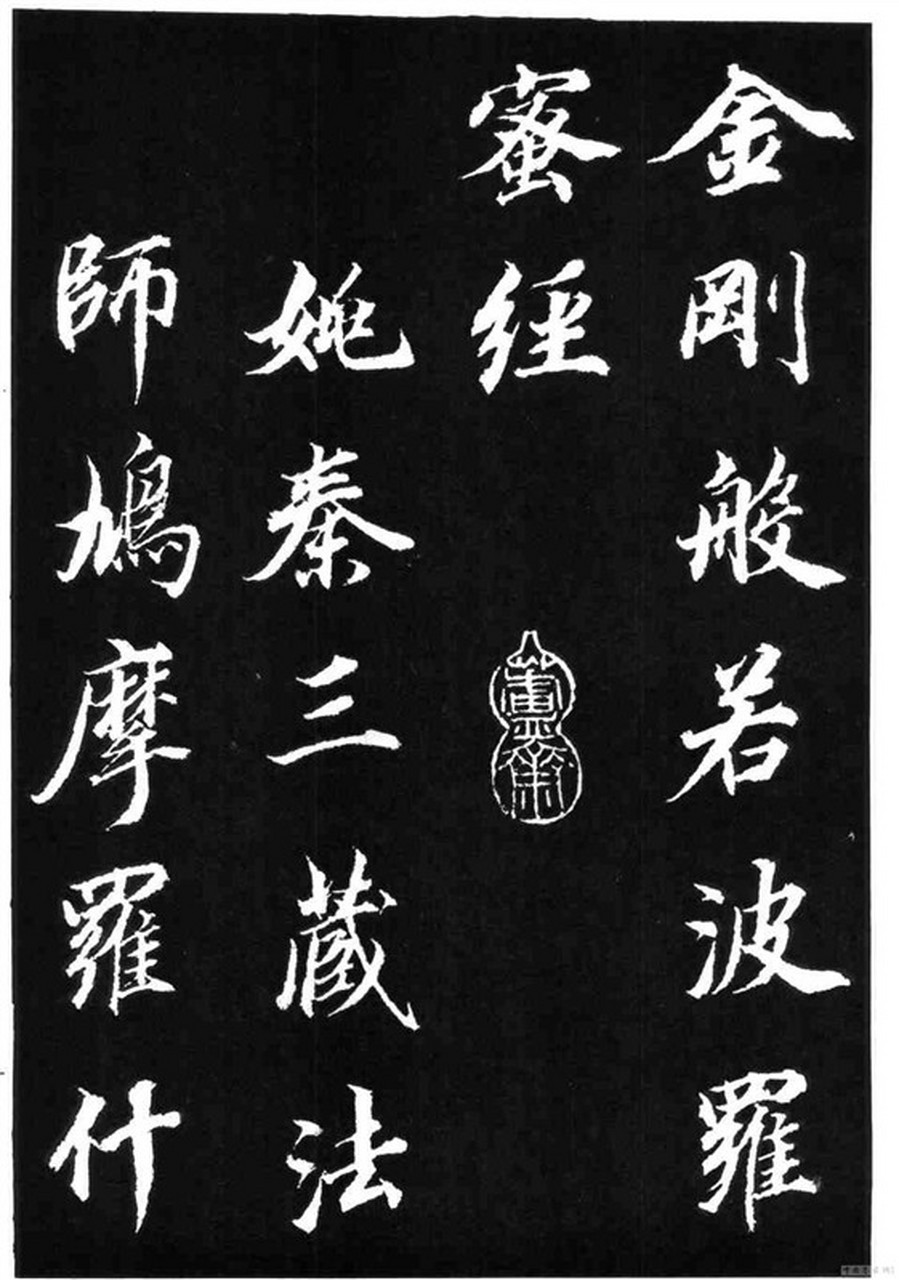 金剛般若波羅
蜜經
薰齋
姚秦三藏法
師鳩摩羅什